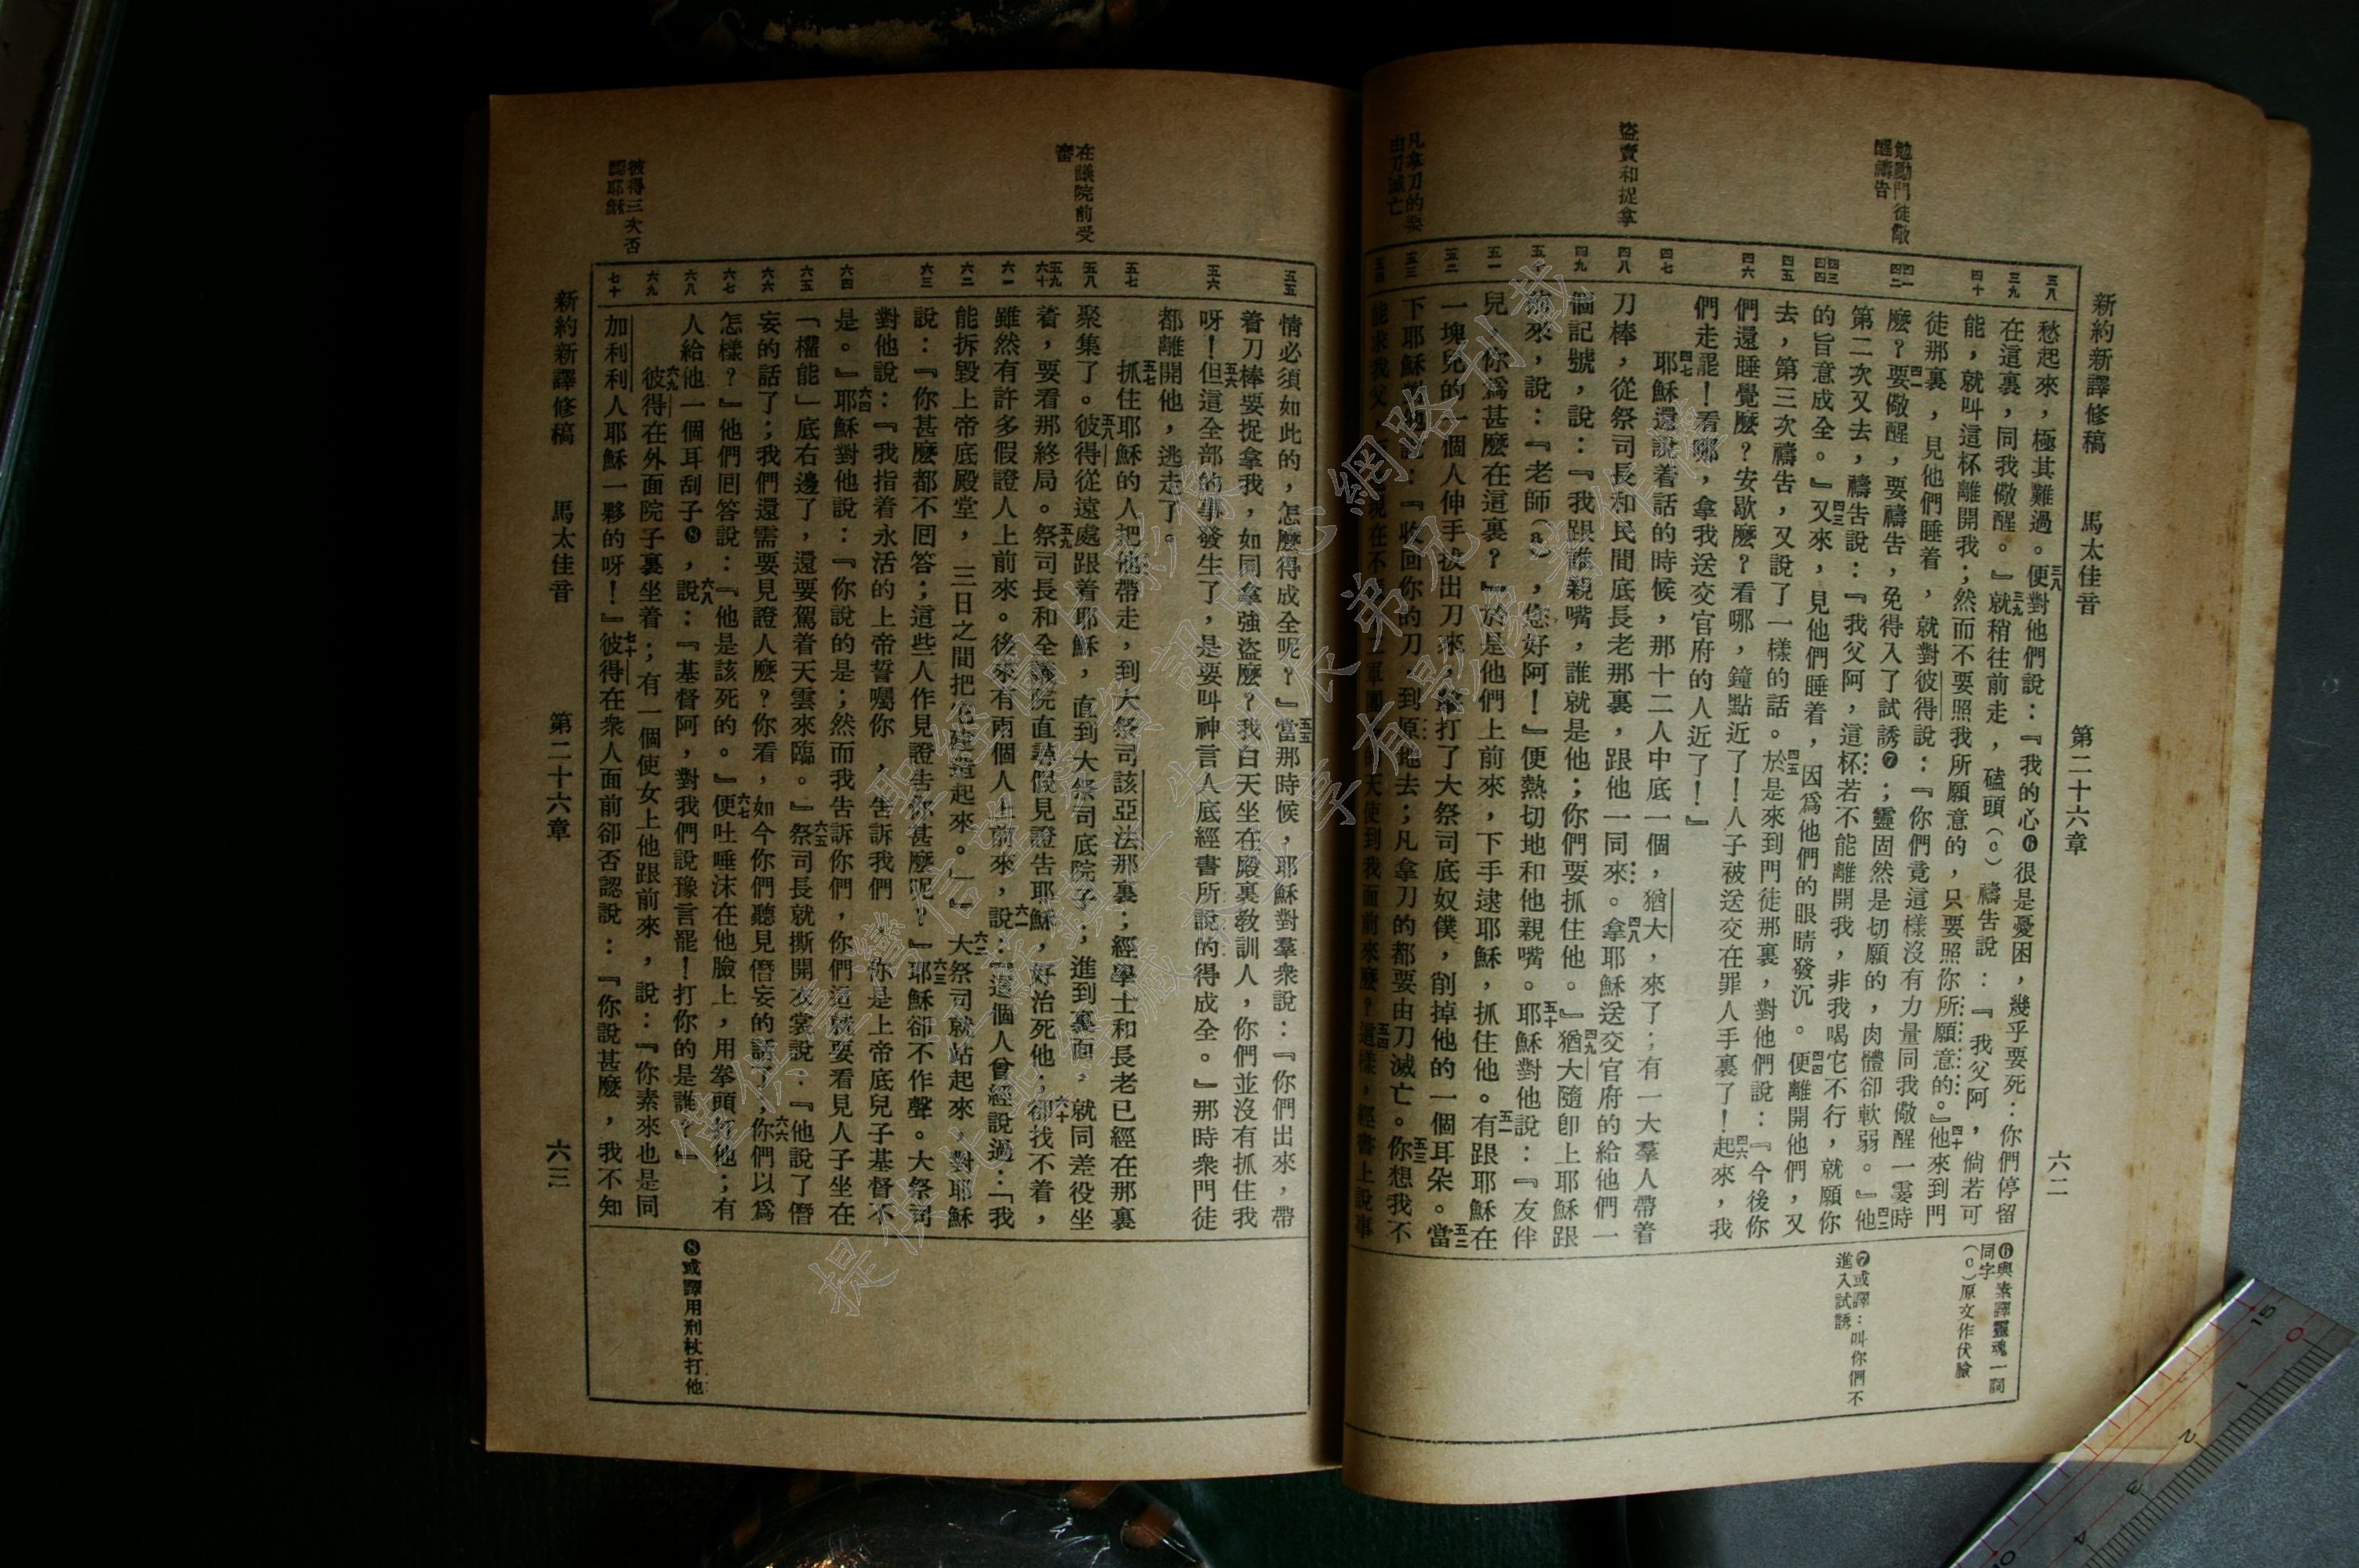 新約新譯修稿　馬太佳音　第二十六章　六二
勉勵門徒儆
醒禱告
盜賣和捉拿
凡拿刀的要
由刀滅亡
三八
三九
四十
四一
四二
四三
四四
四五
四六
四七
四八
四九
五十
五一
五二
五三
五四
愁起來，極其難過。三八便對他們說：『我的心❻很是憂困，幾乎要死：你們停留
在這裏，同我儆醒。』三九就稍往前走，磕頭（c）禱告說：『我父阿，倘若可
能，就叫這杯離開我；然而不要照我所願意的，只要照你所願意的。』四十他來到門
徒那裏，見他們睡着，就對彼得說：『你們竟這樣沒有力量同我儆醒一霎時
麼？四一要儆醒，要禱告，免得入了試誘❼；靈固然是切願的，肉體卻軟弱。』四二他
第二次又去，禱告說：『我父阿，這杯若不能離開我，非我喝它不行，就願你
的旨意成全。』四三又來，見他們睡着，因爲他們的眼睛發沉。四四便離開他們，又
去，第三次禱告，又說了一樣的話。四五於是來到門徒那裏，對他們說：『今後你
們還睡覺麼？安歇麼？看哪，鐘點近了！人子被送交在罪人手裏了！四六起來，我
們走罷！看哪，拿我送交官府的人近了！』
四七耶穌還說着話的時候，那十二人中底一個，猶大，來了；有一大羣人帶着
刀棒，從祭司長和民間底長老那裏，跟他一同來。四八拿耶穌送交官府的給他們一
個記號，說：『我跟誰親嘴，誰就是他；你們要抓住他。』四九猶大隨卽上耶穌跟
前來，說：『老師（a），您好阿！』便熱切地和他親嘴。五十耶穌對他說：『友伴
兒，你爲甚麼在這裏？』於是他們上前來，下手逮耶穌，抓住他。五一有跟耶穌在
一塊兒的一個人伸手拔出刀來，擊打了大祭司底奴僕，削掉他的一個耳朵。五二當
下耶穌對他說：『收回你的刀，到原地去；凡拿刀的都要由刀滅亡。五三你想我不
能求我父，現在不軍團的天使到我面前來麼？五四這樣，經書上說事
❻與素譯靈魂一詞
同字
（c）原文作伏臉
❼或譯：叫你們不
進入試誘
在議院前受
審
彼得三次否
認耶穌
五五
五六
五七
五八
五九
六十
六一
六二
六三
六四
六五
六六
六七
六八
六九
七十
情必須如此的，怎麼得成全呢？』五五當那時候，耶穌對羣衆說：『你們出來，帶
着刀棒要捉拿我，如同拿強盜麼？我白天坐在殿裏敎訓人，你們並沒有抓住我
呀！五六但這全部的事發生了，是要叫神言人底經書所說的得成全。』那時衆門徒
都離開他，逃走了。
五七抓住耶穌的人把他帶走，到大祭司該亞法那裏；經學士和長老已經在那裏
聚集了。五八彼得從遠處跟着耶穌，直到大祭司底院子；進到裏面，就同差役坐
着，要看那終局。五九祭司長和全議院直尋假見證告耶穌，好治死他；六十卻找不着，
雖然有許多假證人上前來。後來有兩個人上前來，六一說：『這個人曾經說過：「我
能拆毀上帝底殿堂，三日之間把它建造起來。」』六二大祭司就站起來，對耶穌
說：『你甚麼都不回答；這些人作見證告你甚麼呢？』六三耶穌卻不作聲。大祭司
對他說：『我指着永活的上帝誓囑你，告訴我們，你是上帝底兒子基督不
是。』六四耶穌對他說：『你說的是；然而我告訴你們，你們這就要看見人子坐在
「權能」底右邊了，還要駕着天雲來臨。』六五祭司長就撕開衣裳說：『他說了僭
妄的話了；我們還需要見證人麼？你看，如今你們聽見僭妄的話了，六六你們以爲
怎樣？』他們回答說：『他是該死的。』六七便吐唾沫在他臉上，用拳頭打他；有
人給他一個耳刮子❽，六八說：『基督阿，對我們說豫言罷！打你的是誰？』
六九彼得在外面院子裏坐着；有一個使女上他跟前來，說：『你素來也是同
加利利人耶穌一夥的呀！』七十彼得在衆人面前卻否認說：『你說甚麼，我不知
❽或譯用刑杖打他
新約新譯修稿　馬太佳音　第二十六章　六三